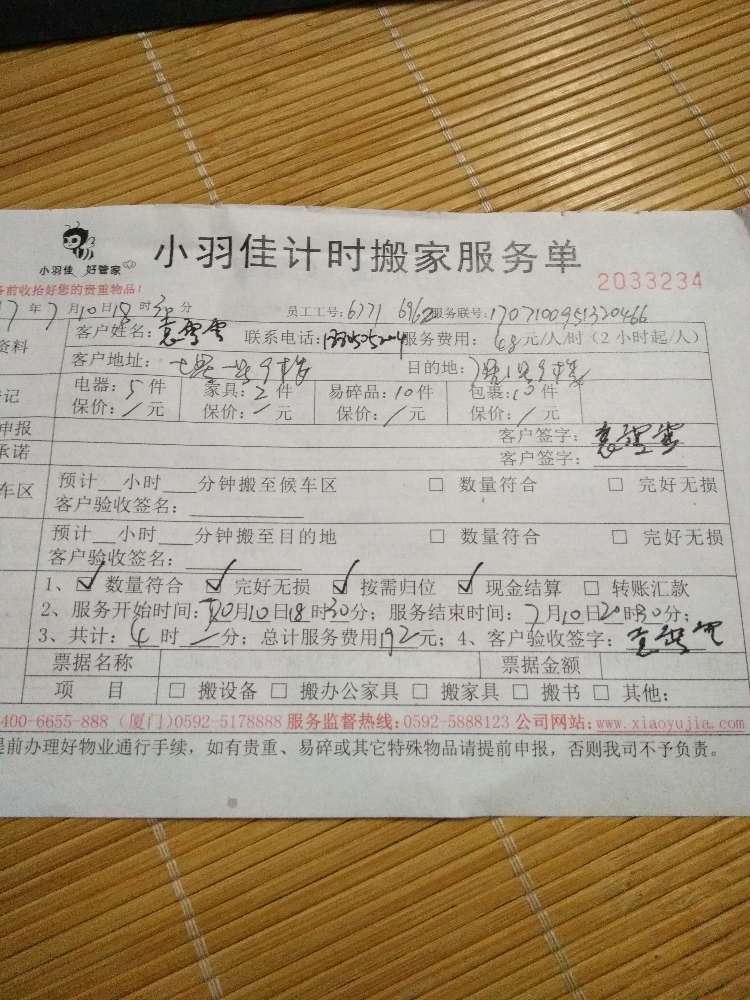 小羽佳 好管家
小羽佳计时搬家服务单
2033234
务前收拾好您的贵重物品!
7年7月10日18时30分 员工工号:6771 6962 服务联号:1707100951320466
资料 客户姓名: 联系电话: 服务费用:68元/人/时(2小时起/人)
客户地址: 目的地:
记 电器:5件 家具:2件 易碎品:10件 包裹:10件
保价:/元 保价:/元 保价:/元 保价:/元
申报 客户签字:
承诺 客户签字:
车区 预计__小时___分钟搬至候车区 □ 数量符合 □ 完好无损
客户验收签名:
预计__小时___分钟搬至目的地 □ 数量符合 □ 完好无损
客户验收签名:
1、☑ 数量符合 ☑ 完好无损 ☑ 按需归位 ☑ 现金结算 □ 转账汇款
2、服务开始时间:月10日18时30分;服务结束时间:7月10日20时30分;
3、共计:4时一分;总计服务费用192元;4、客户验收签字:
票据名称 票据金额
项 目 □ 搬设备 □ 搬办公家具 □ 搬家具 □ 搬书 □ 其他:
400-6655-888 (厦门)0592-5178888 服务监督热线:0592-5888123 公司网站:www.xiaoyujia.com
提前办理好物业通行手续,如有贵重、易碎或其它特殊物品请提前申报,否则我司不予负责。